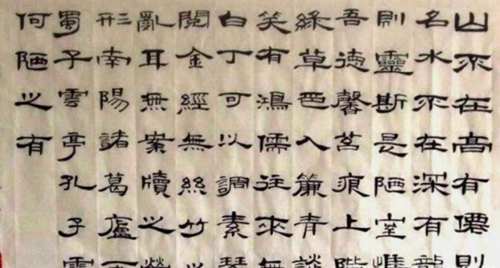 山不在高有僊則
名水不在深有龍
則靈斯是陋室惟
吾德馨苔痕上階
綠草色入簾青談
笑有鴻儒往來無
白丁可以調素琴
閱金經無絲竹之
亂耳無案牘之勞
形南陽諸葛廬西
蜀子雲亭孔子雲
何陋之有